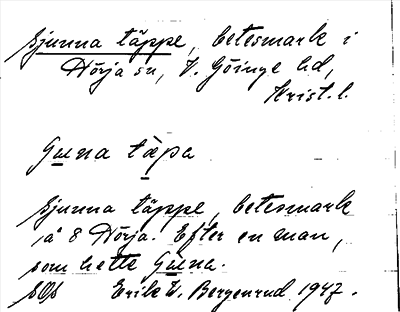 Gunna täppe, betesmark i
Nörja sn, V. Göinge hd,
Krist. l.
Guna täpa
Gunna täppe, betesmark
i å 8 Nörja. Efter en man,
som hette Guna.
SOs Erik V. Bergenrud 1947.